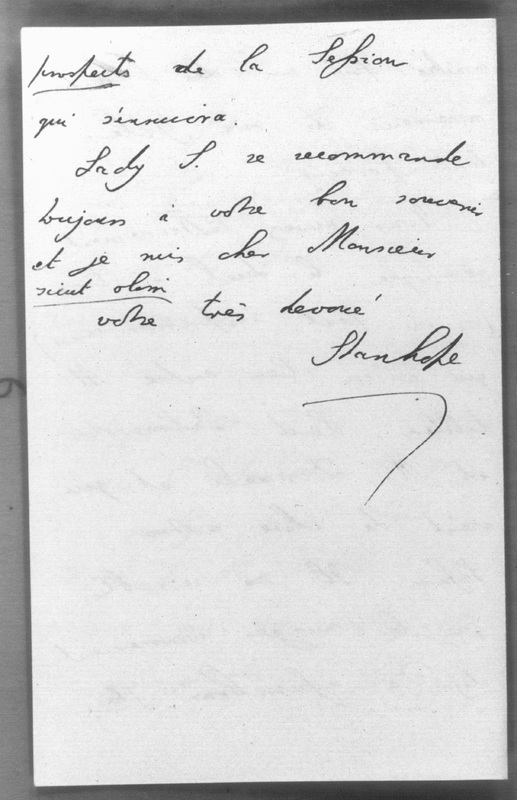 prospects de la Session
qui s'ensuivra.
Lady S. se recommande
toujours à votre bon souvenir
et je suis cher Monsieur
sicut olim
votre très devoué
Stanhope